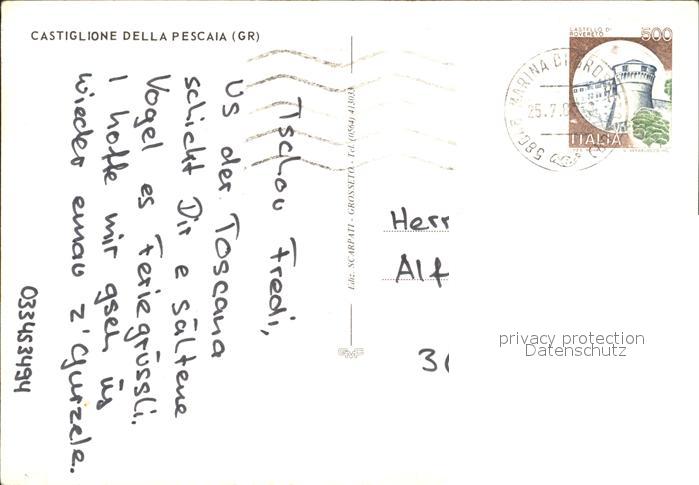 CASTIGLIONE DELLA PESCAIA (GR)
Tschou Fredi,
us der Toscana
schickt Dir e sältene
Vogel es Feriegrüssli.
I hoffe mir gseh üs
wieder emau z'Gurzele.
0334523494
Ediz. SCARPATI - GROSSETO - Tel. (0564) 413033
CASTELLO DI
ROVERETO
500
ITALIA
MARINA DI GRO
25.7.
Herr
Alf
3
privacy protection
Datenschutz